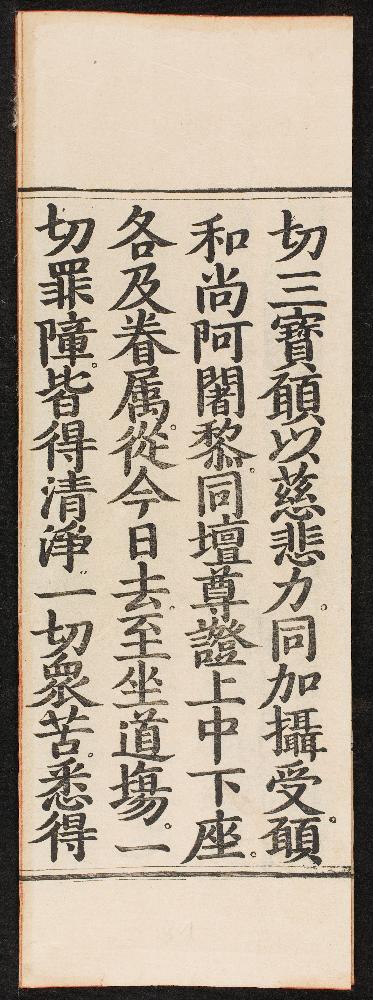 切三寶願以慈悲力。同加攝受願。
和尚阿闍黎。同壇尊證上中下座。
各及眷属。從今日去。至坐道塲。一
切罪障。皆得清淨。一切衆苦。悉得